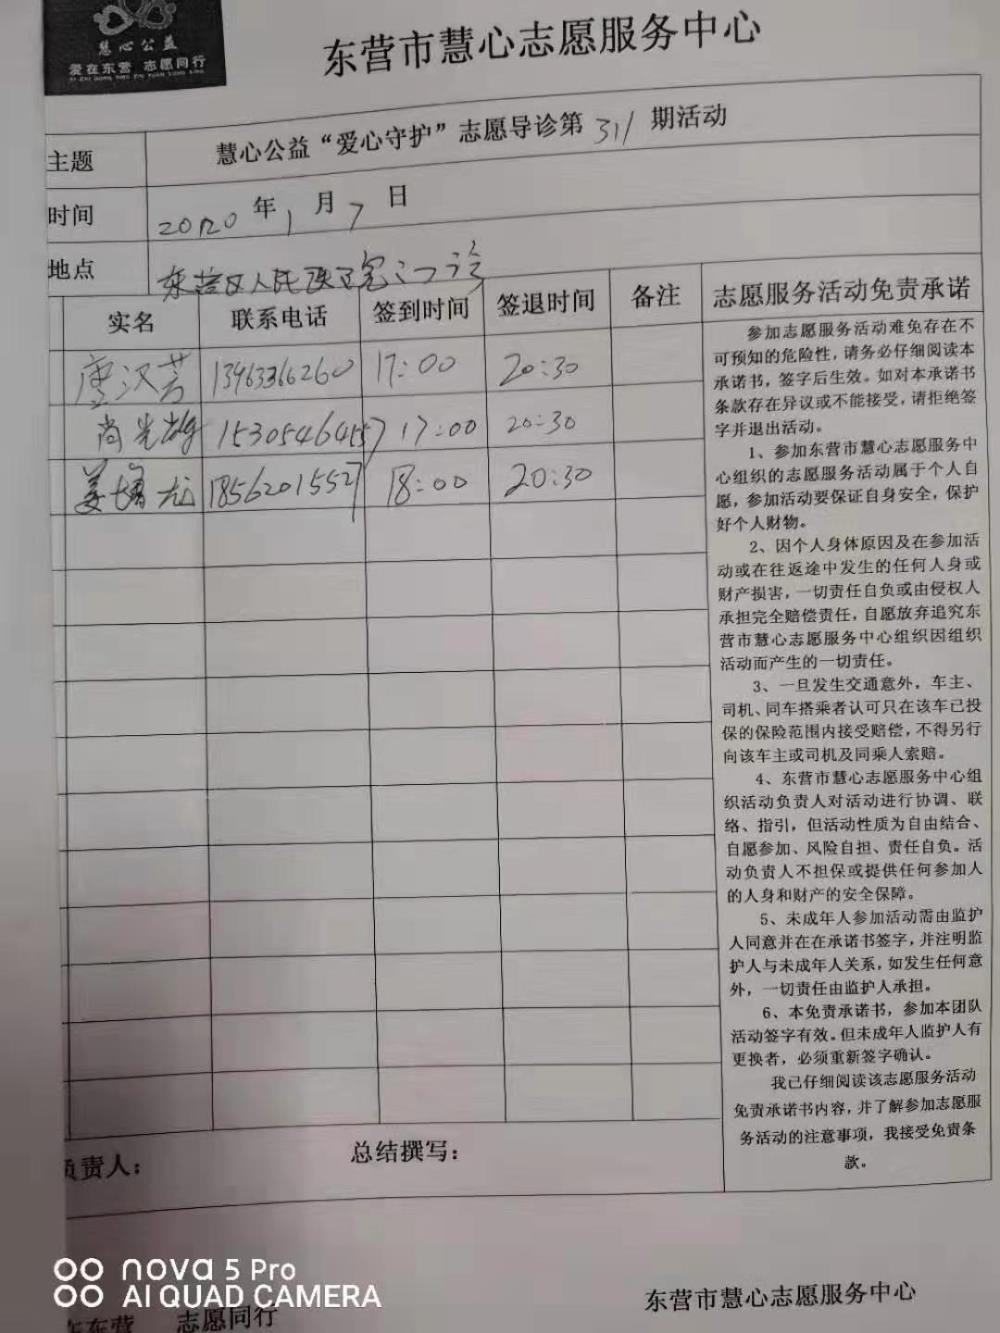 慧心公益
爱在东营 志愿同行
东营市慧心志愿服务中心
主题 慧心公益“爱心守护”志愿导诊第311期活动
时间 2020年1月7日
地点 东营区人民医院门诊
实名 联系电话 签到时间 签退时间 备注
13963366260 17:00 20:30
尚光 15305464557 17:00 20:30
姜 18562015527 18:00 20:30
志愿服务活动免责承诺
参加志愿服务活动难免存在不
可预知的危险性，请务必仔细阅读本
承诺书，签字后生效。如对本承诺书
条款存在异议或不能接受，请拒绝签
字并退出活动。
1、参加东营市慧心志愿服务中
心组织的志愿服务活动属于个人自
愿，参加活动要保证自身安全，保护
好个人财物。
2、因个人身体原因及在参加活
动或在往返途中发生的任何人身或
财产损害，一切责任自负或由侵权人
承担完全赔偿责任，自愿放弃追究东
营市慧心志愿服务中心组织因组织
活动而产生的一切责任。
3、一旦发生交通意外，车主、
司机、同车搭乘者认可只在该车已投
保的保险范围内接受赔偿，不得另行
向该车主或司机及同乘人索赔。
4、东营市慧心志愿服务中心组
织活动负责人对活动进行协调、联
络、指引，但活动性质为自由结合、
自愿参加、风险自担、责任自负。活
动负责人不担保或提供任何参加人
的人身和财产的安全保障。
5、未成年人参加活动需由监护
人同意并在在承诺书签字，并注明监
护人与未成年人关系，如发生任何意
外，一切责任由监护人承担。
6、本免责承诺书，参加本团队
活动签字有效。但未成年人监护人有
更换者，必须重新签字确认。
我已仔细阅读该志愿服务活动
免责承诺书内容，并了解参加志愿服
务活动的注意事项，我接受免责条
款。
负责人： 总结撰写：
nova 5 Pro
AI QUAD CAMERA
在东营 志愿同行
东营市慧心志愿服务中心